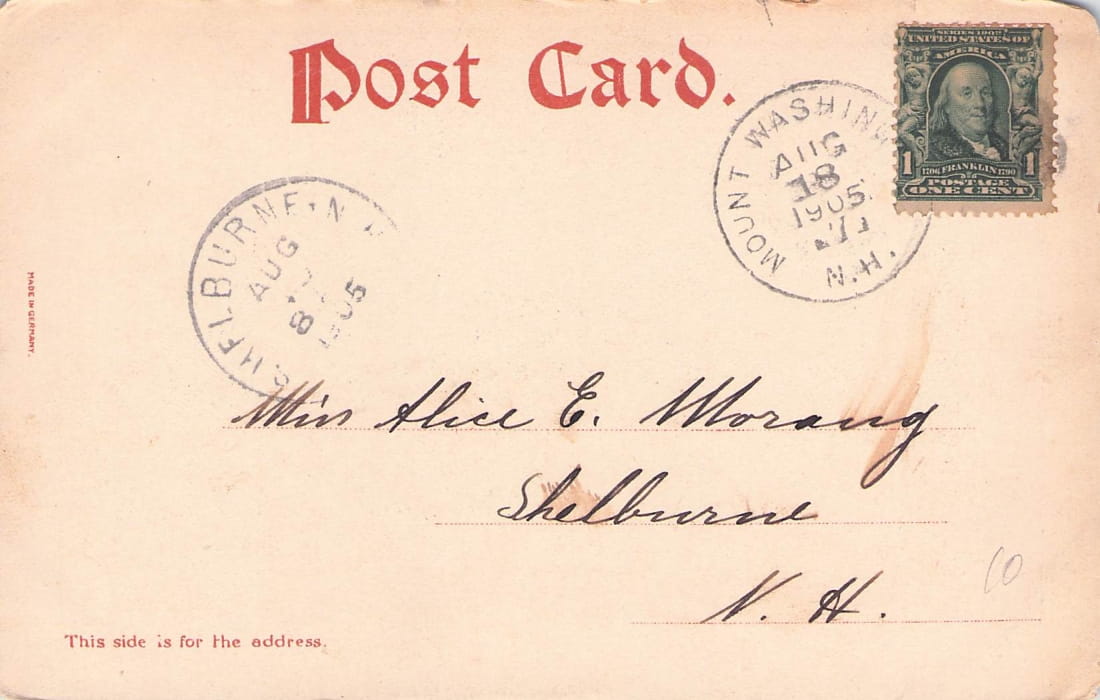 Post Card.
SERIES 1902
UNITED STATES OF
AMERICA
1 1
1706 FRANKLIN 1790
POSTAGE
ONE CENT
MOUNT WASHING
AUG
18
1905
N.H.
SHELBURNE. N.
AUG
1905
MADE IN GERMANY.
Miss Alice E. Morang
Shelburne
N. H.
10
This side is for the address.